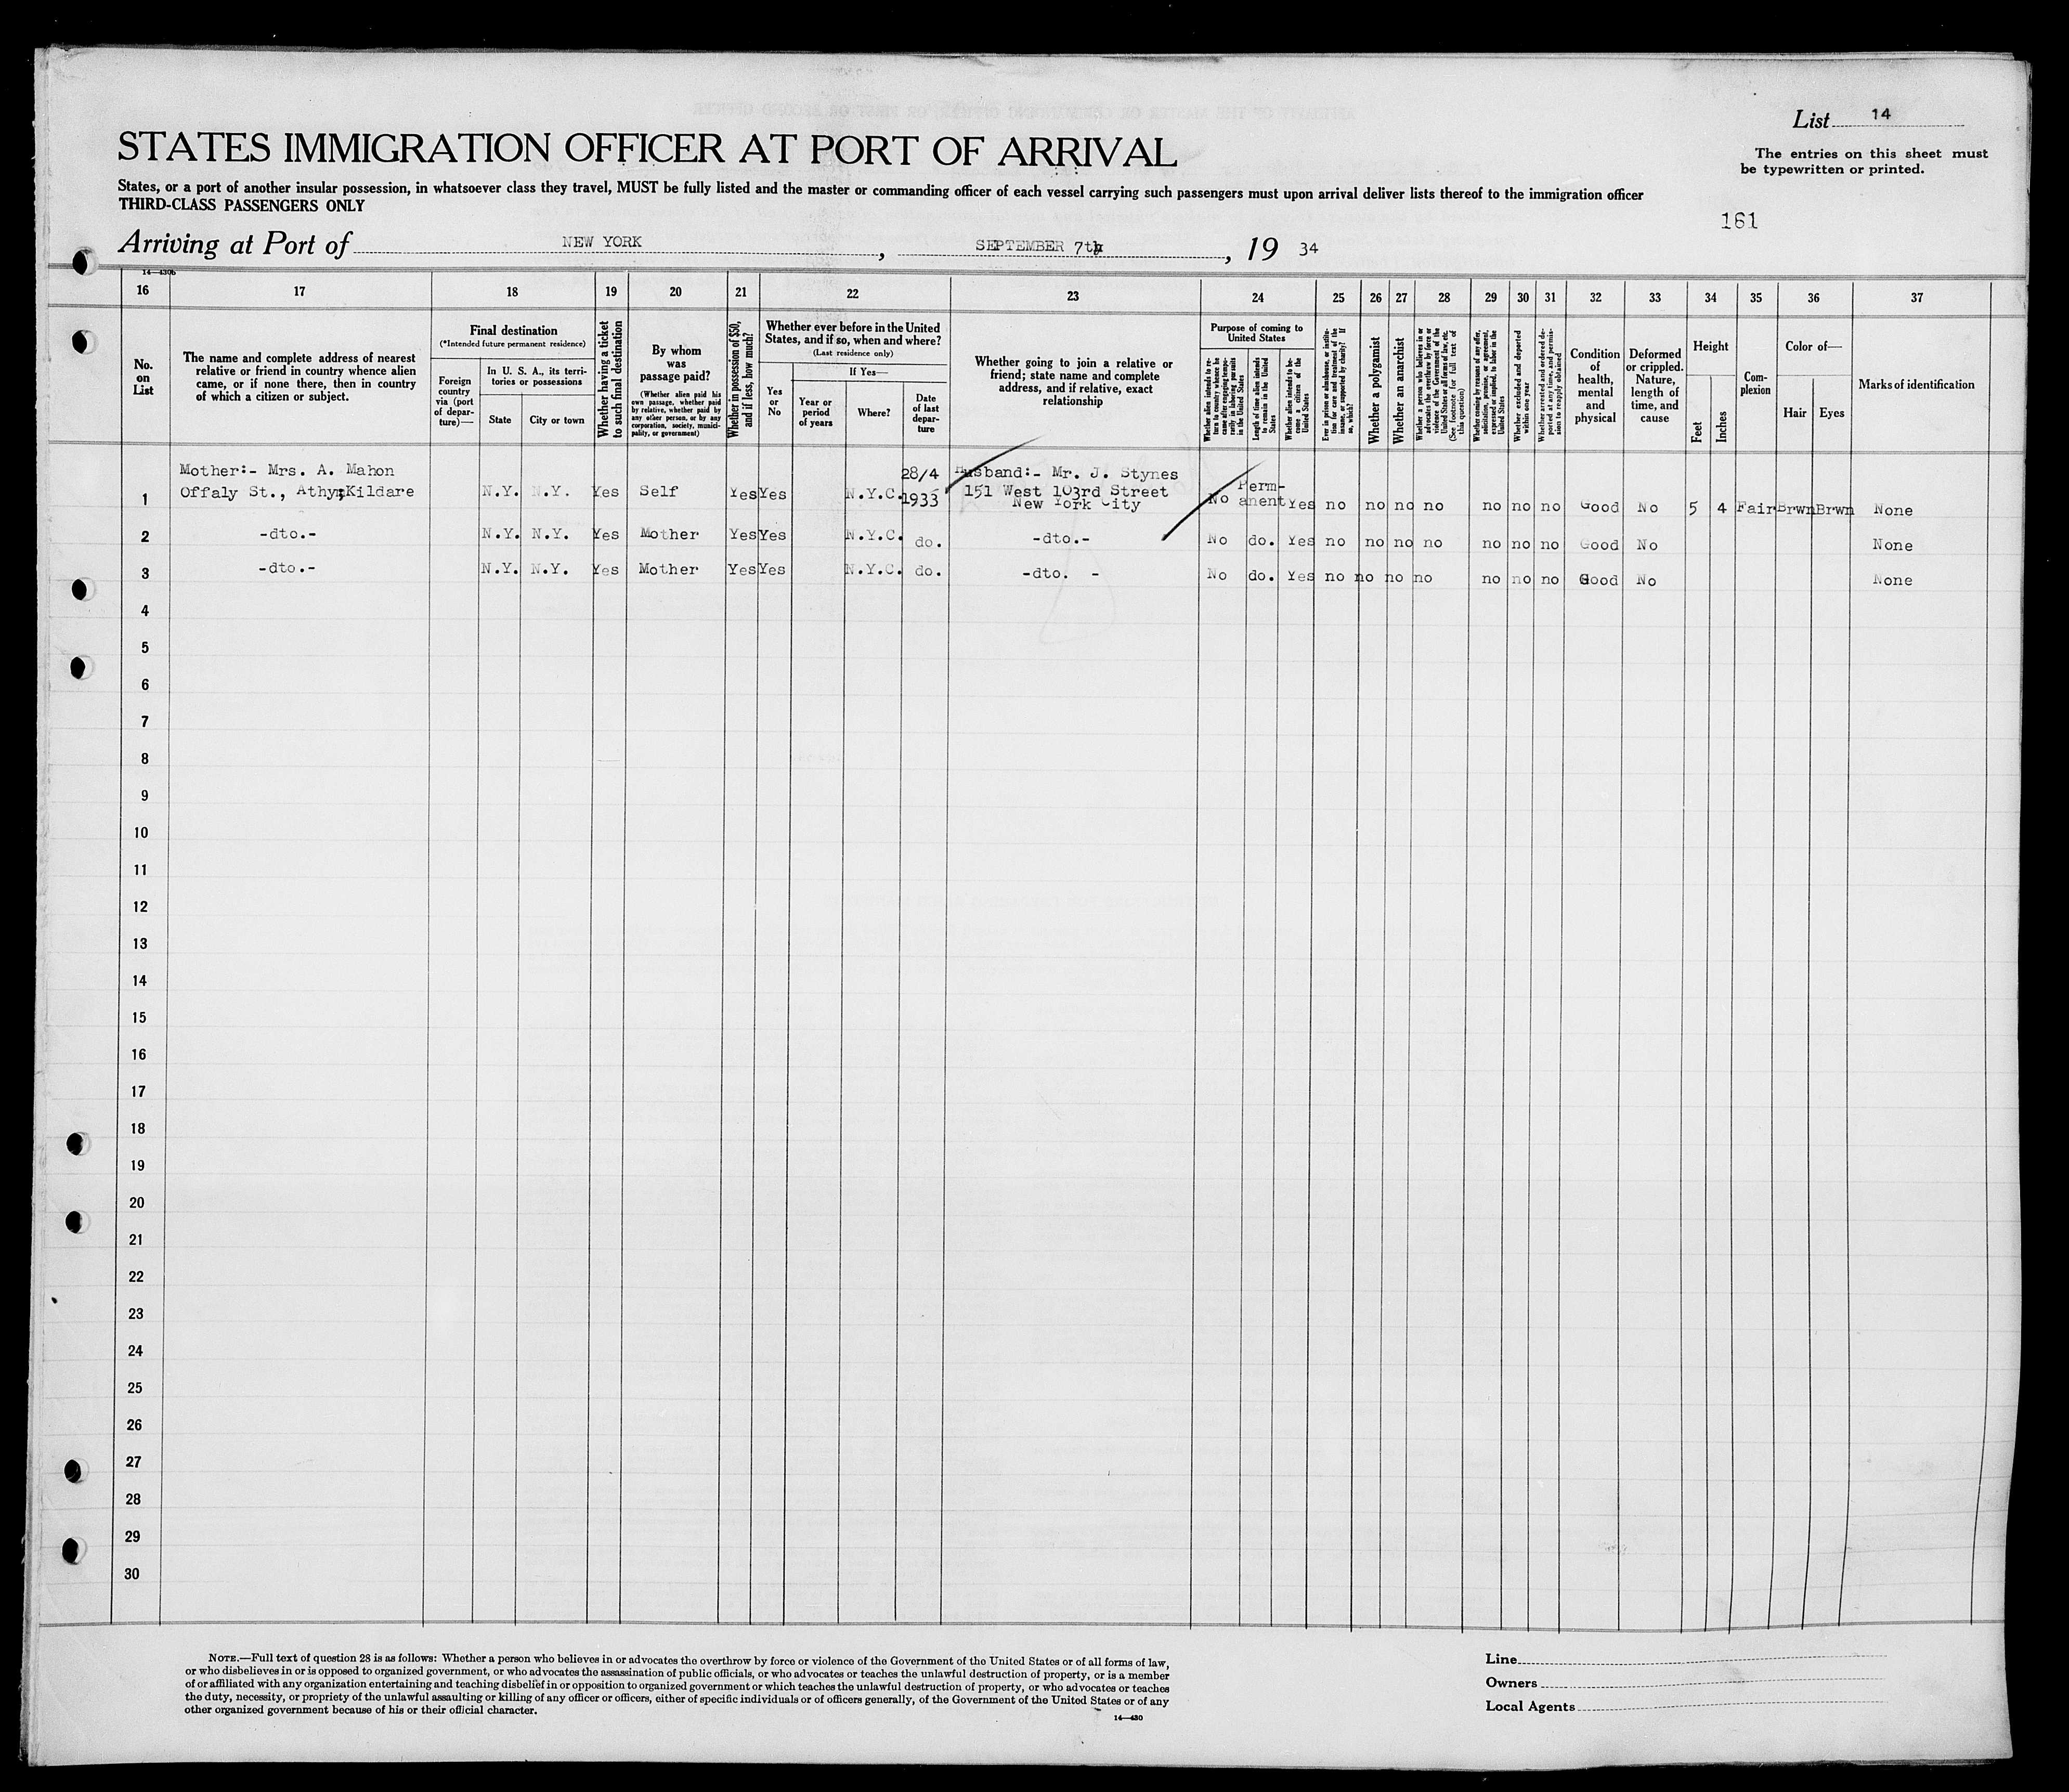 List 14
STATES IMMIGRATION OFFICER AT PORT OF ARRIVAL
The entries on this sheet must
be typewritten or printed.
States, or a port of another insular possession, in whatsoever class they travel, MUST be fully listed and the master or commanding officer of each vessel carrying such passengers must upon arrival deliver lists thereof to the immigration officer
THIRD-CLASS PASSENGERS ONLY
161
Arriving at Port of NEW YORK, SEPTEMBER 7th, 19 34
14—430b
16 17 18 19 20 21 22 23 24 25 26 27 28 29 30 31 32 33 34 35 36 37
No.
on
List
The name and complete address of nearest
relative or friend in country whence alien
came, or if none there, then in country
of which a citizen or subject.
Final destination
(*Intended future permanent residence)
Foreign
country
via (port
of depar-
ture)—
In U. S. A., its terri-
tories or possessions
State
City or town
Whether having a ticket
to such final destination
By whom
was
passage paid?
(Whether alien paid his
own passage, whether paid
by relative, whether paid by
any other person, or by any
corporation, society, munici-
pality, or government)
Whether in possession of $50,
and if less, how much?
Whether ever before in the United
States, and if so, when and where?
(Last residence only)
Yes
or
No
If Yes—
Year or
period
of years
Where?
Date
of last
depar-
ture
Whether going to join a relative or
friend; state name and complete
address, and if relative, exact
relationship
Purpose of coming to
United States
Whether alien intends to re-
turn to country whence he
came after engaging tempo-
rarily in laboring pursuits
in the United States
Length of time alien intends
to remain in the United
States
Whether alien intends to be-
come a citizen of the
United States
Ever in prison or almshouse, or institu-
tion for care and treatment of the
insane, or supported by charity? If
so, which?
Whether a polygamist
Whether an anarchist
Whether a person who believes in or
advocates the overthrow by force or
violence of the Government of the
United States or all forms of law, etc.
(See footnote for full text of
this question)
Whether coming by reasons of any offer,
solicitation, promise, or agreement,
expressed or implied, to labor in the
United States
Whether excluded and deported
within one year
Whether arrested and ordered de-
ported at any time, and permis-
sion to reapply obtained
Condition
of
health,
mental
and
physical
Deformed
or crippled.
Nature,
length of
time, and
cause
Height
Feet
Inches
Com-
plexion
Color of—
Hair
Eyes
Marks of identification
Mother:- Mrs. A. Mahon 28/4 Husband:- Mr. J. Stynes
1 Offaly St., Athy, Kildare N.Y. N.Y. Yes Self Yes Yes N.Y.C. 1933 151 West 103rd Street Perm-
New York City No anent Yes no no no no no no no Good No 5 4 Fair Brwn Brwn None
2 -dto.- N.Y. N.Y. Yes Mother Yes Yes N.Y.C. do. -dto.- No do. Yes no no no no no no no Good No None
3 -dto.- N.Y. N.Y. Yes Mother Yes Yes N.Y.C. do. -dto. - No do. Yes no no no no no no no Good No None
4
5
6
7
8
9
10
11
12
13
14
15
16
17
18
19
20
21
22
23
24
25
26
27
28
29
30
NOTE.—Full text of question 28 is as follows: Whether a person who believes in or advocates the overthrow by force or violence of the Government of the United States or of all forms of law,
or who disbelieves in or is opposed to organized government, or who advocates the assassination of public officials, or who advocates or teaches the unlawful destruction of property, or is a member
of or affiliated with any organization entertaining and teaching disbelief in or opposition to organized government or which teaches the unlawful destruction of property, or who advocates or teaches
the duty, necessity, or propriety of the unlawful assaulting or killing of any officer or officers, either of specific individuals or of officers generally, of the Government of the United States or of any
other organized government because of his or their official character.
14—430
Line
Owners
Local Agents